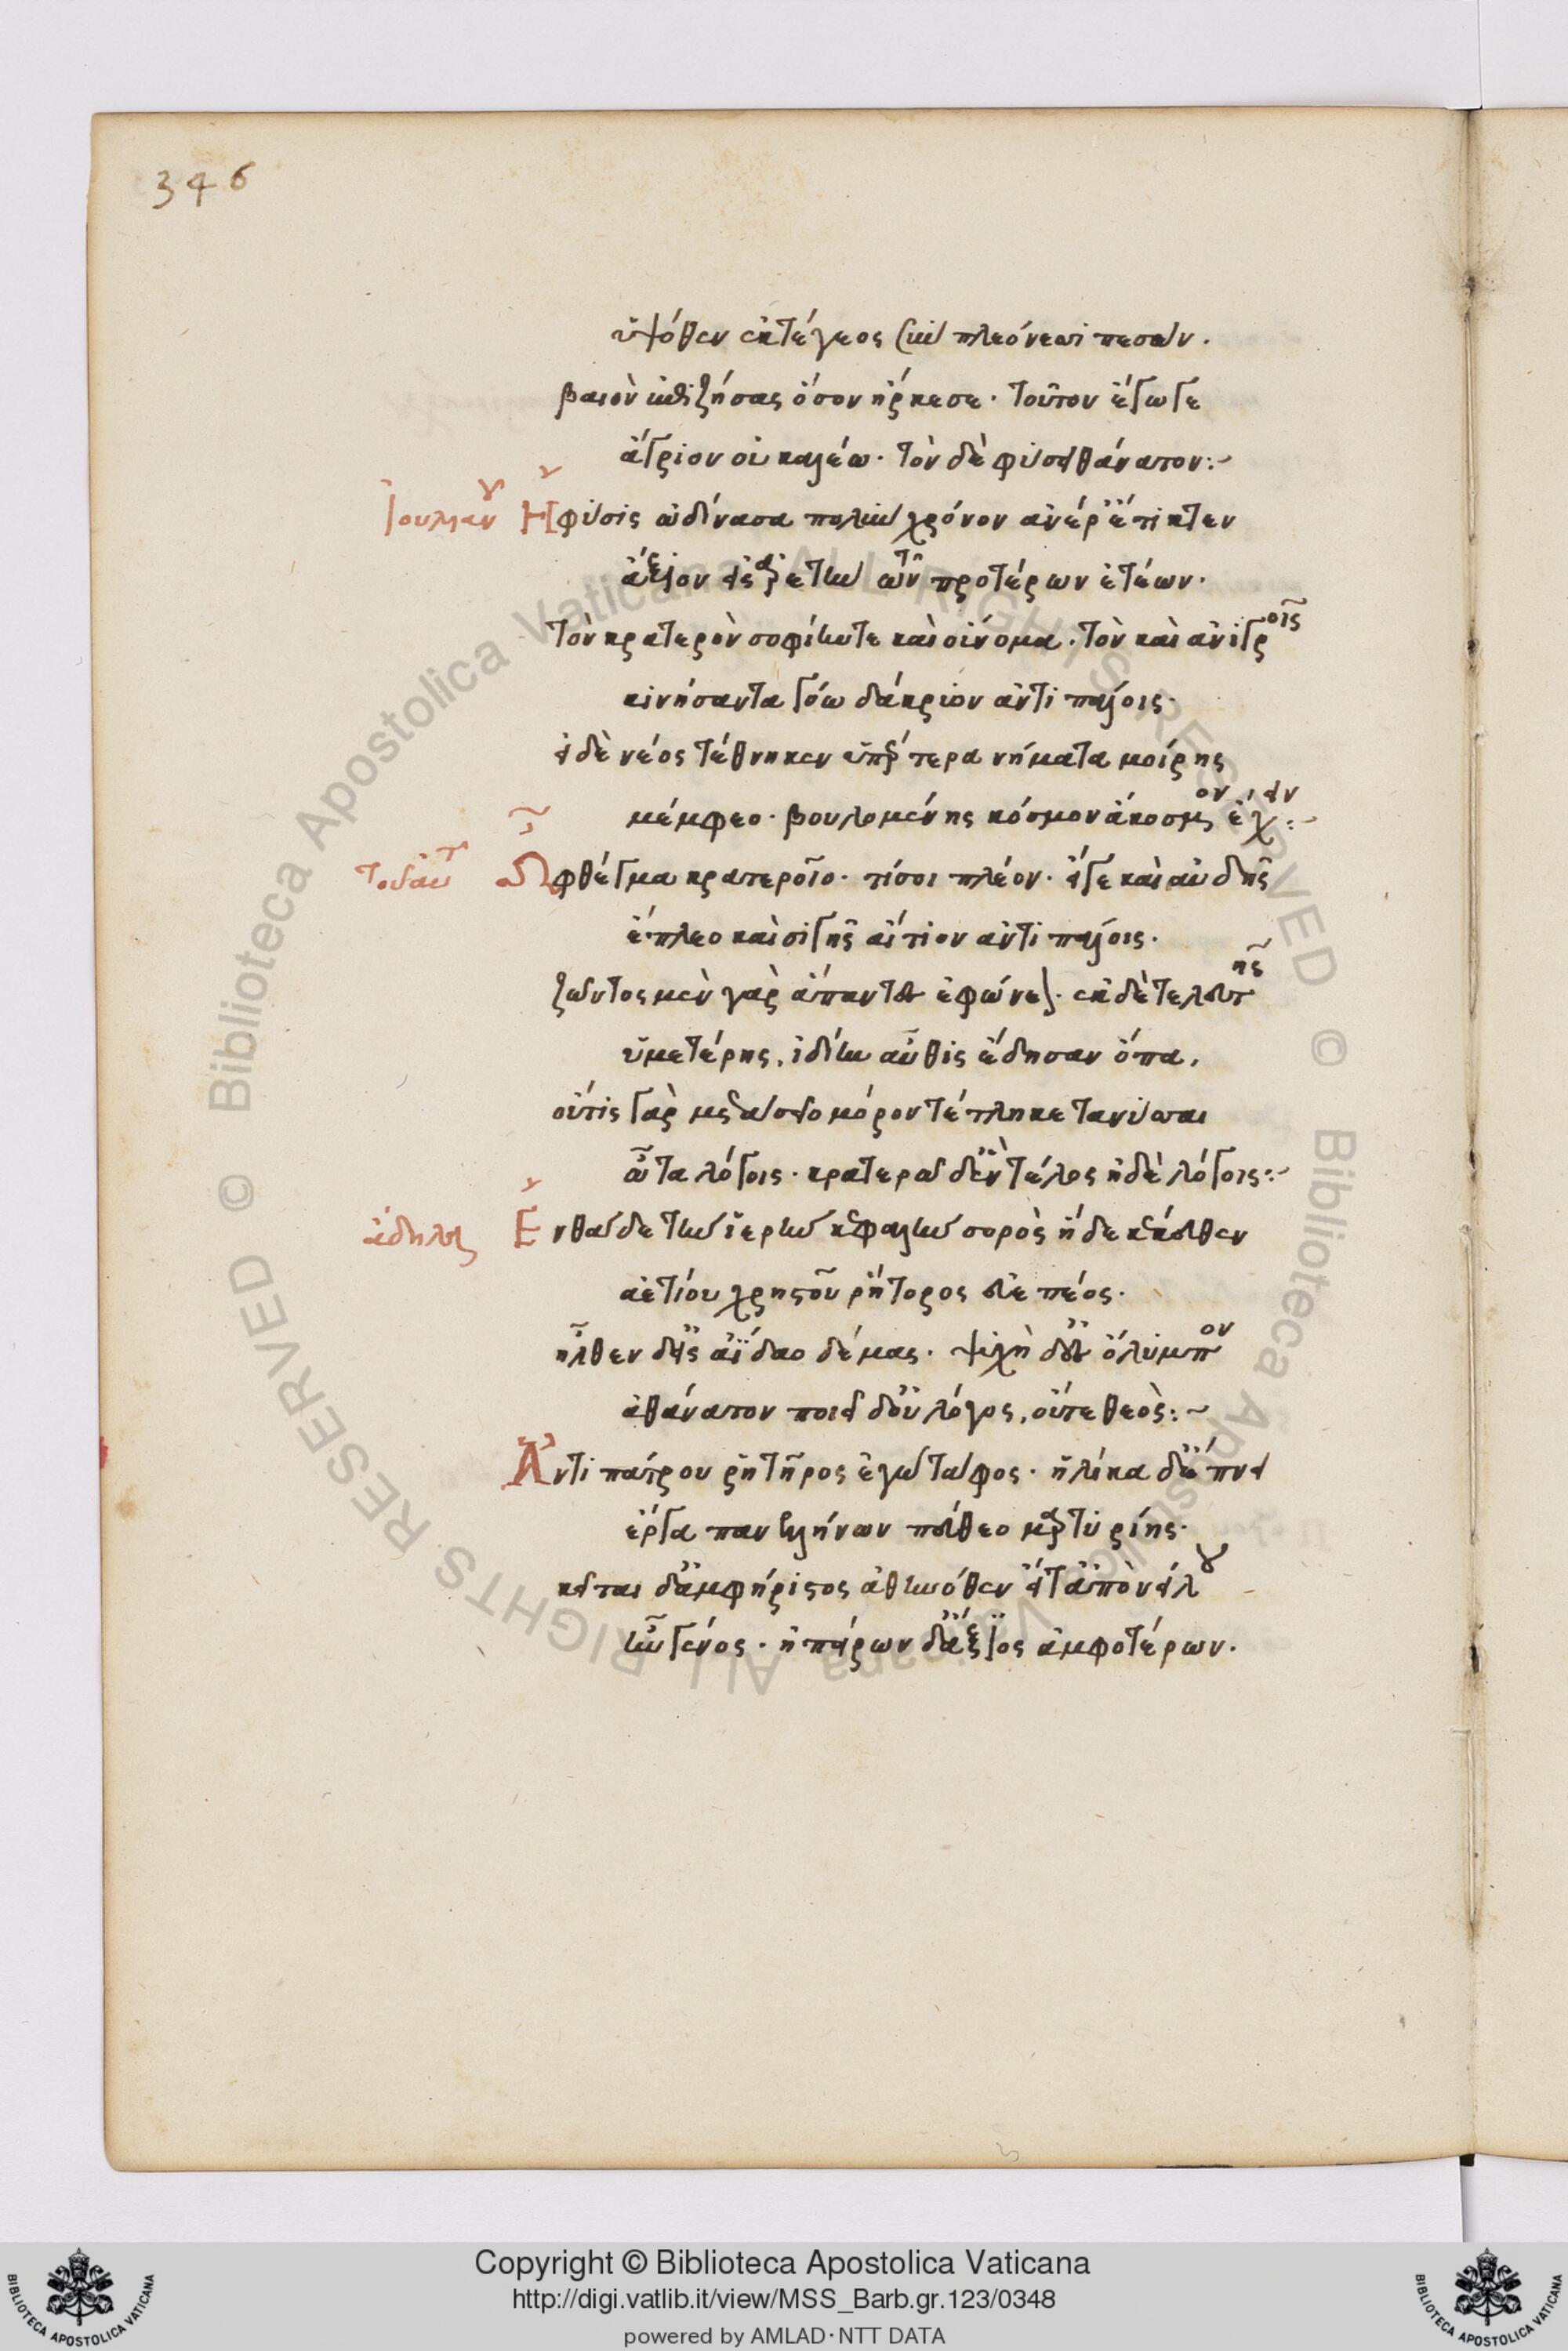 346
ὑψόθεν ἐκ τέγεος σὺν πλεόνεσσι πεσών.
βαιὸν ἐπιζήσας ὅσον ἤρκεσε. τοῦτον ἔγωγε
ἄγριον οὐ καλέω. τὸν δὲ φύσει θάνατον:~
Ἰουλιανοῦ Ἡ φύσις ὠδίνασα πολὺν χρόνον ἀνέρ' ἔτικτεν
ἄξιον εἰς ἀρετὴν τῶν προτέρων ἐτέων.
τὸν κρατερὸν σοφίην τε καὶ οὔνομα. τὸν καὶ ἀνιγροῖς
κινήσαντα γόῳ δάκρυον ἀντιπάλοις.
εἰ δὲ νέος τέθνηκεν ὑπέρτερα νήματα μοίρης
μέμφεο. βουλομένης κόσμον ἄκοσμον ἔχειν:~
τοῦ αὐτοῦ Ὦ φθέγμα κρατεροῖο. τί σοι πλέον. εἴγε καὶ αὐδῆς
ἔπλεο καὶ σιγῆς αἴτιον ἀντιπάλοις.
ζῶντος μὲν γὰρ ἅπαντες ἐφώνεον. ἐκ δὲ τελευτῆς
ὑμετέρης, ἰδίην αὖθις ἔδησαν ὄπα,
οὔτις γὰρ μετὰ σεῖο μόρον τέτληκε τανύσσαι
ὦτα λόγοις. κρατερῷ δ' ἓν τέλος ἠδὲ λόγοις:~
ἄδηλον Ἐνθάδε τὴν ἱερὴν κεφαλὴν σορὸς ἥδε κέκευθεν
ἀετίου χρηστοῦ ῥήτορος εὐεπέος.
ἦλθεν δ' εἰς ἀΐδαο δέμας. ψυχὴ δ' ἐς ὄλυμπον
ἀθάνατον ποιεῖ δ' οὐ λόγος, οὔτε θεὸς:~
Ἀντιπάτρου ῥητῆρος ἐγὼ τάφος. ἡλίκα δ' ἔπνει
ἔργα πανελλήνων πεύθεο μαρτυρίης.
κεῖται δ' ἀμφήριστος ἀθηνόθεν εἴτ' ἀπὸ νείλου
ἦν γένος. ἠπείρων δ' ἄξιος ἀμφοτέρων.
Copyright © Biblioteca Apostolica Vaticana
http://digi.vatlib.it/view/MSS_Barb.gr.123/0348
powered by AMLAD·NTT DATA